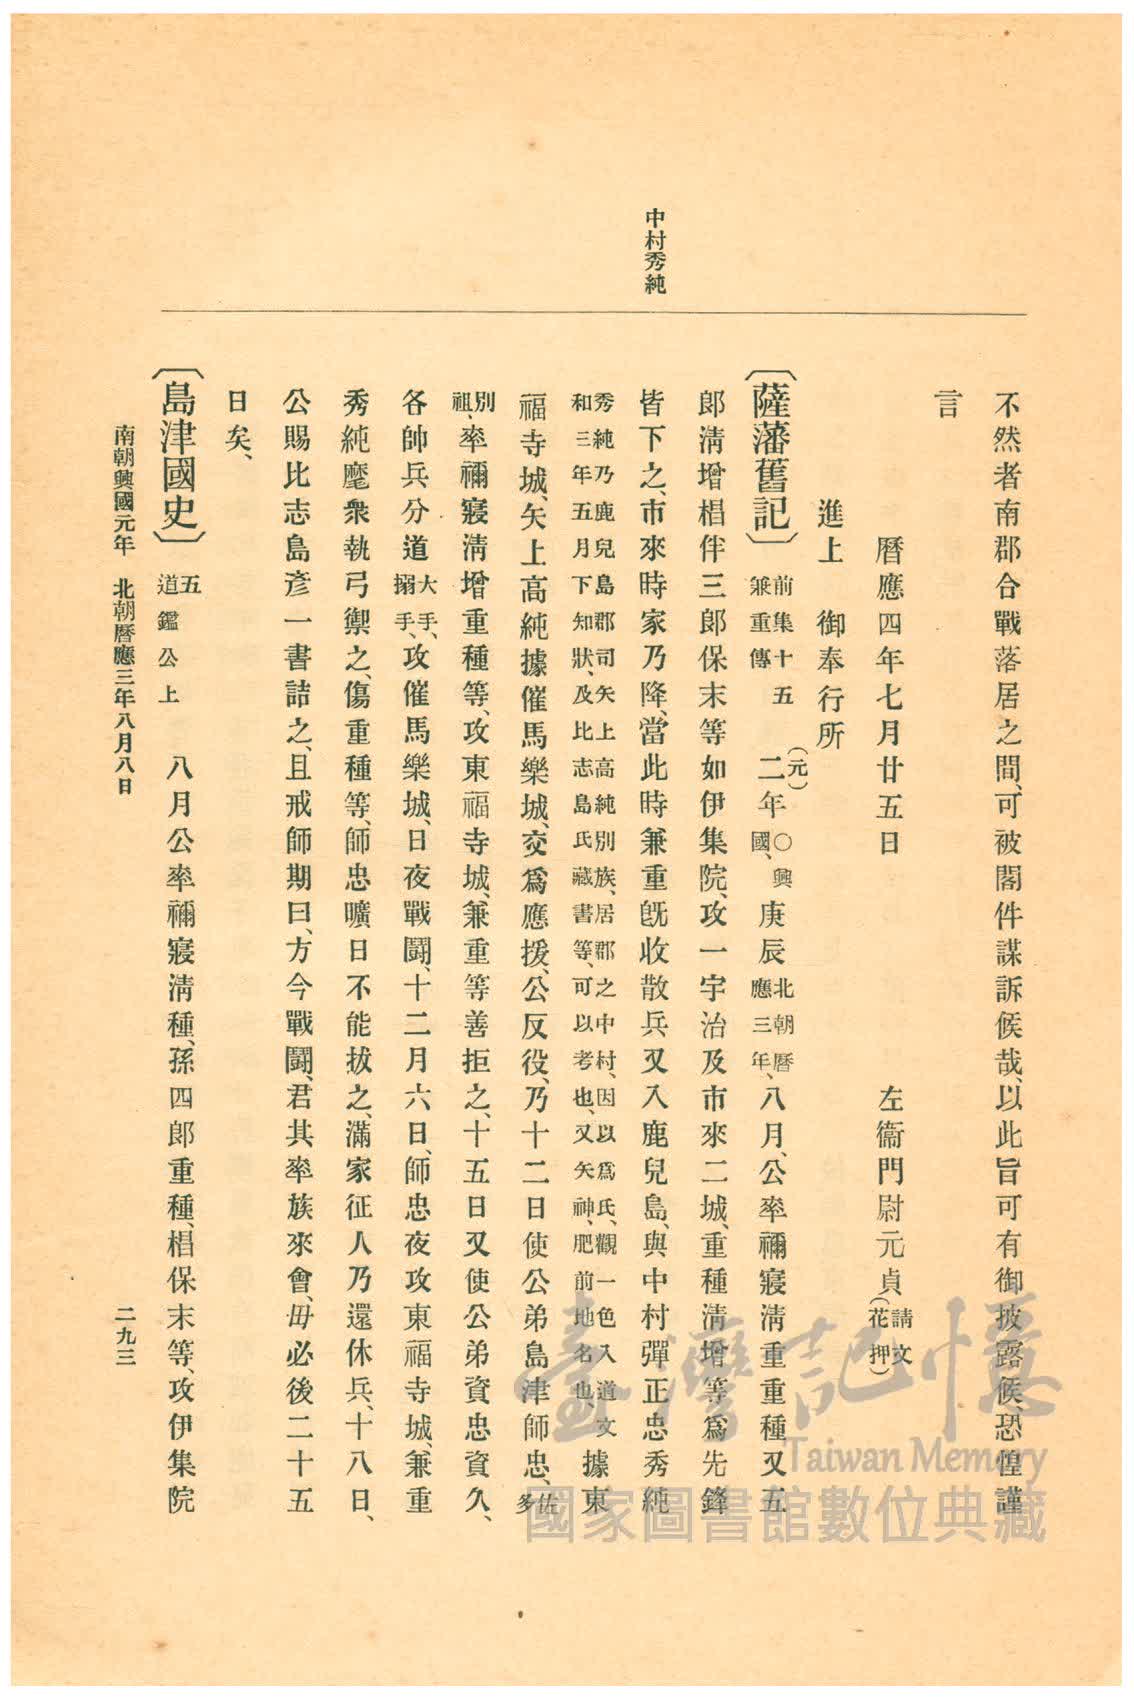 中村秀純
不然者南郡合戰落居之間、可被閣件謀訴候哉、以此旨可有御披露候、恐惶謹
言
曆應四年七月廿五日　左衞門尉元貞(請文花押)
進上　御奉行所
〔薩藩舊記〕前集十五兼重傳　二(元)年○興國、庚辰北朝曆應三年、八月、公率禰寢淸重重種又五
郎淸增椙伴三郎保末等如伊集院、攻一宇治及市來二城、重種淸增等爲先鋒
皆下之、市來時家乃降、當此時兼重旣收散兵又入鹿兒島、與中村彈正忠秀純
秀純乃鹿兒島郡司矢上高純別族、居郡之中村、因以爲氏、觀一色入道文和三年五月下知狀、及比志島氏藏書等、可以考也、又矢神、肥前地名也、據東
福寺城、矢上高純據催馬樂城、交爲應援、公反役、乃十二日使公弟島津師忠、佐多
別祖、率禰寢淸增重種等、攻東福寺城、兼重等善拒之、十五日又使公弟資忠資久、
各帥兵分道大手、搦手、攻催馬樂城、日夜戰鬪、十二月六日、師忠夜攻東福寺城、兼重
秀純麾衆執弓禦之、傷重種等、師忠曠日不能拔之、滿家征人乃還休兵、十八日、
公賜比志島彥一書誥之、且戒師期曰、方今戰鬪、君其率族來會、毋必後二十五
日矣、
〔島津國史〕五道鑑公上　八月公率禰寢淸種、孫四郎重種、椙保末等、攻伊集院
南朝興國元年　北朝曆應三年八月八日
二九三
臺灣記憶
Taiwan Memory
國家圖書館數位典藏